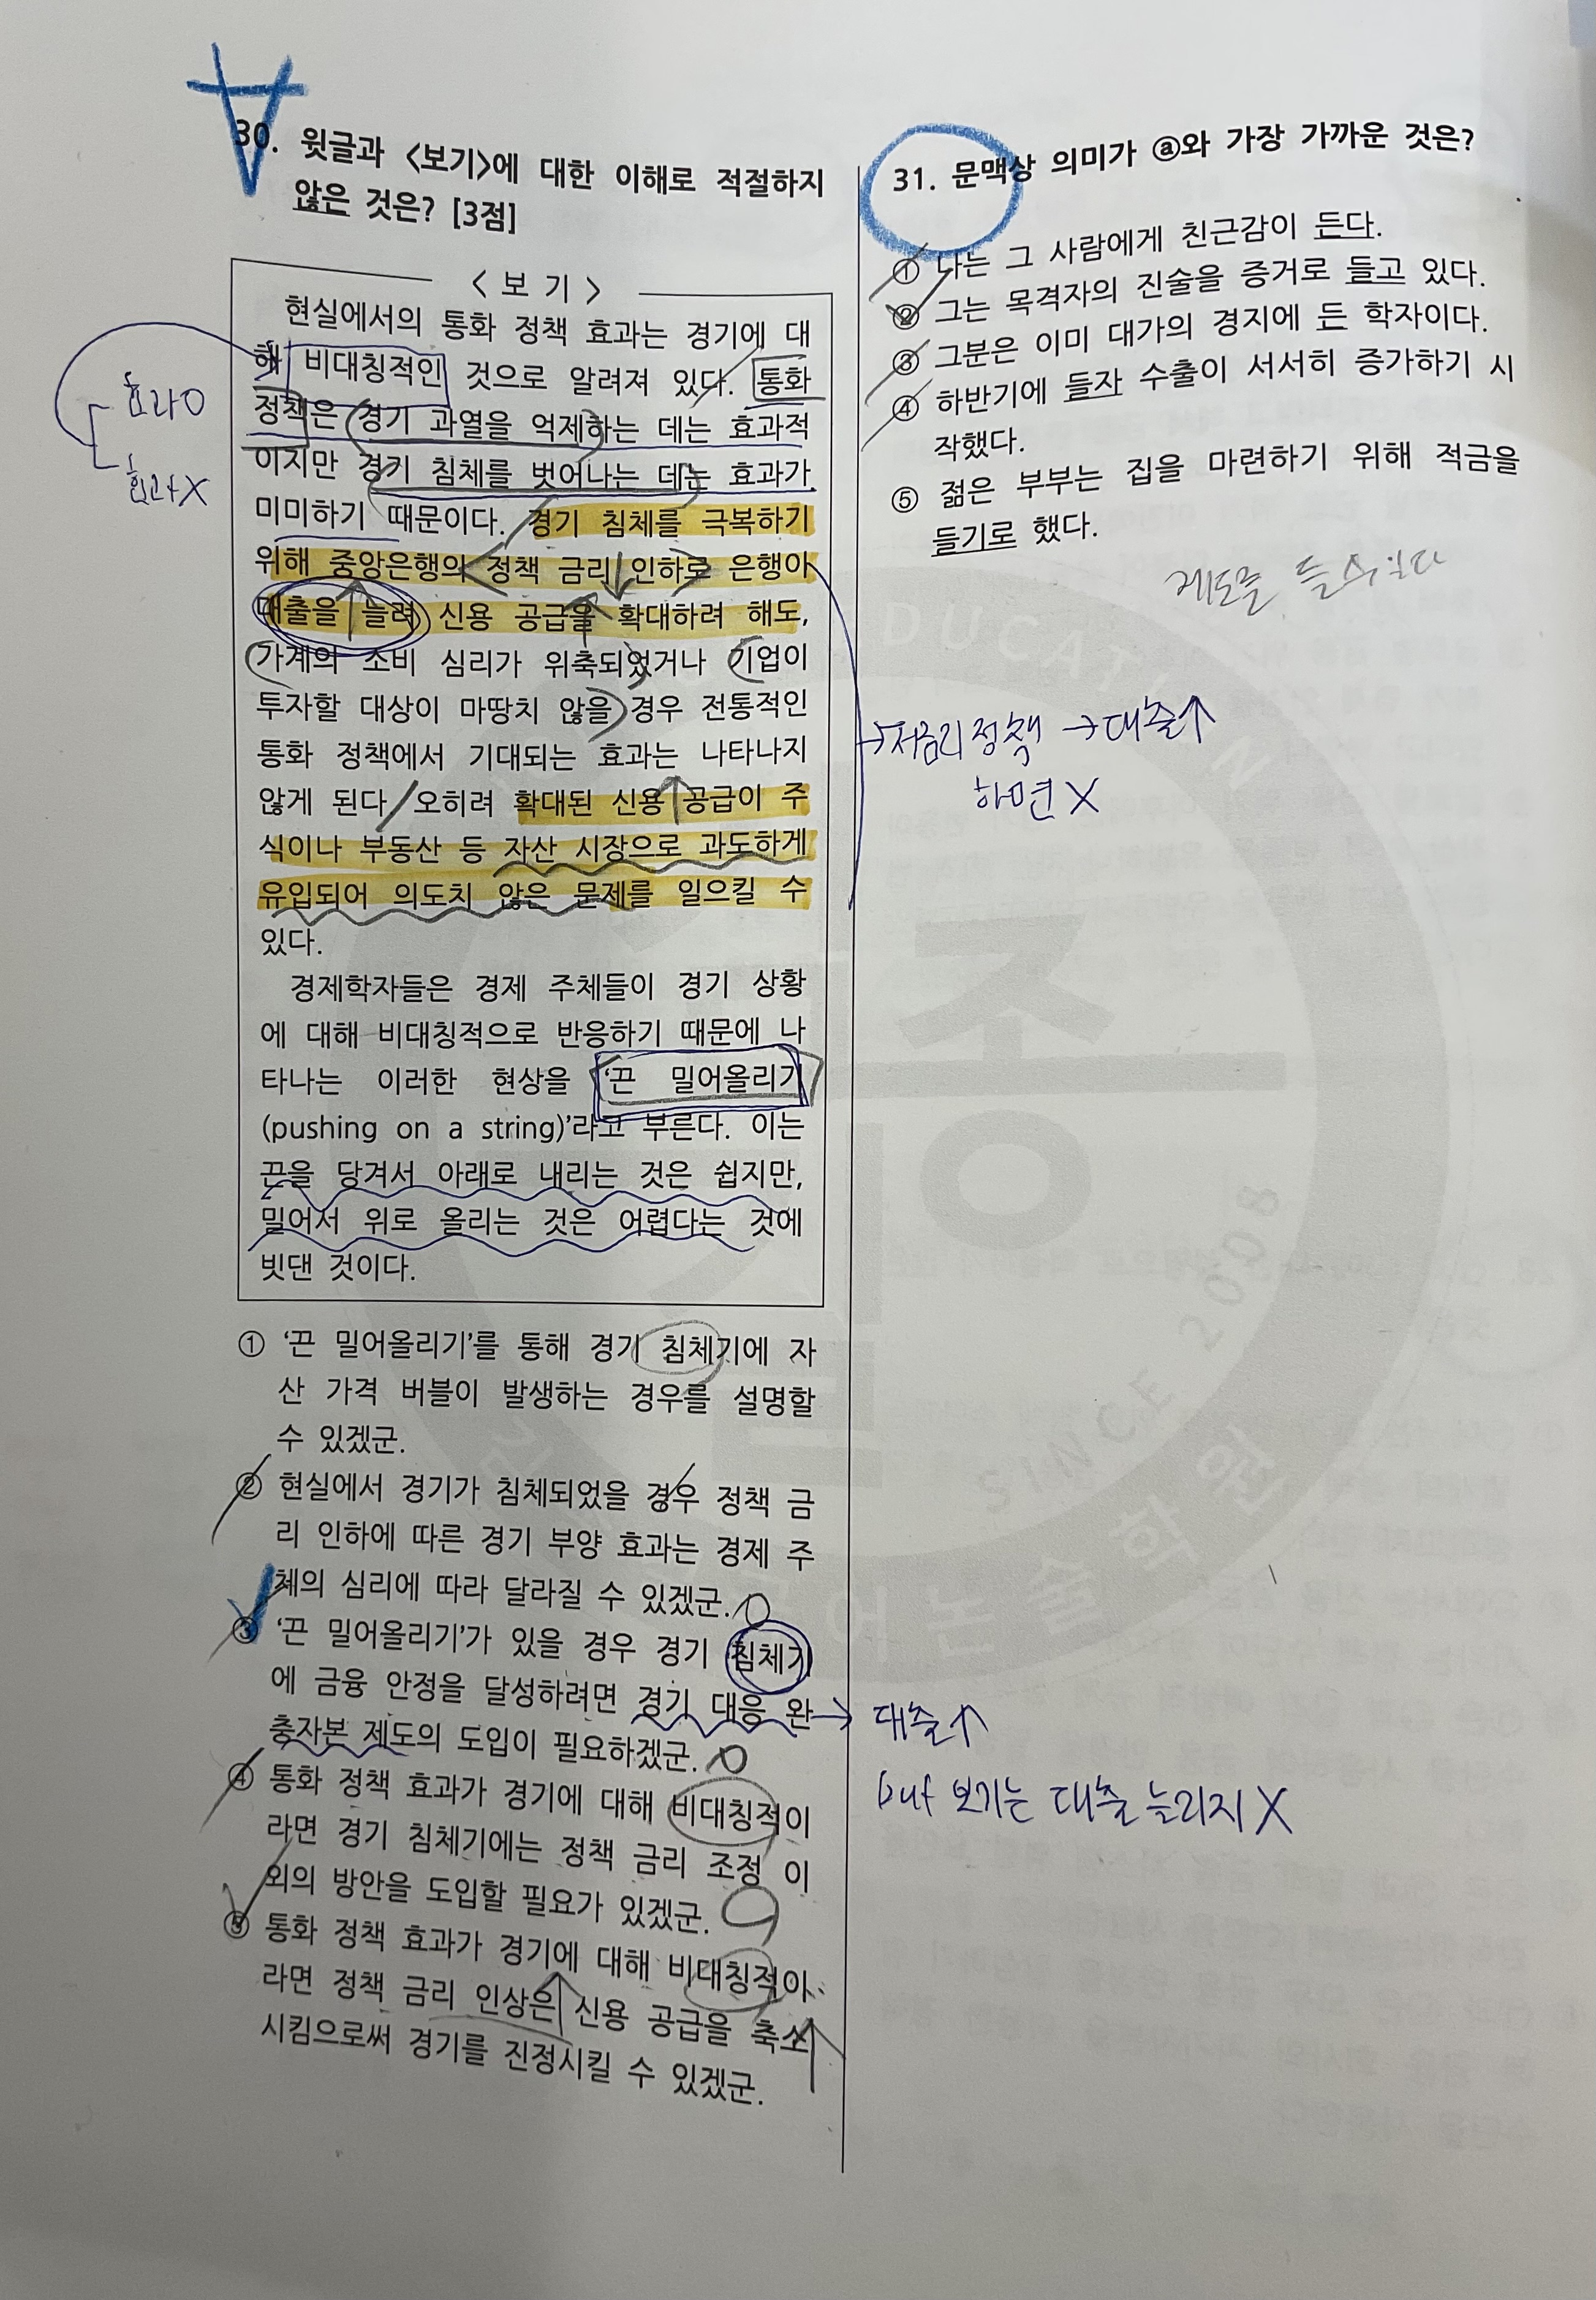 30. 윗글과 <보기>에 대한 이해로 적절하지
않은 것은? [3점]
< 보 기 >
현실에서의 통화 정책 효과는 경기에 대
해 비대칭적인 것으로 알려져 있다. 통화
정책은 경기 과열을 억제하는 데는 효과적
이지만 경기 침체를 벗어나는 데는 효과가
미미하기 때문이다. 경기 침체를 극복하기
위해 중앙은행의 정책 금리 인하로 은행이
대출을 늘려 신용 공급을 확대하려 해도,
가계의 소비 심리가 위축되었거나 기업이
투자할 대상이 마땅치 않을 경우 전통적인
통화 정책에서 기대되는 효과는 나타나지
않게 된다. 오히려 확대된 신용 공급이 주
식이나 부동산 등 자산 시장으로 과도하게
유입되어 의도치 않은 문제를 일으킬 수
있다.
경제학자들은 경제 주체들이 경기 상황
에 대해 비대칭적으로 반응하기 때문에 나
타나는 이러한 현상을 ‘끈 밀어올리기
(pushing on a string)’라고 부른다. 이는
끈을 당겨서 아래로 내리는 것은 쉽지만,
밀어서 위로 올리는 것은 어렵다는 것에
빗댄 것이다.
효과O
효과X
① ‘끈 밀어올리기’를 통해 경기 침체기에 자
산 가격 버블이 발생하는 경우를 설명할
수 있겠군.
② 현실에서 경기가 침체되었을 경우 정책 금
리 인하에 따른 경기 부양 효과는 경제 주
체의 심리에 따라 달라질 수 있겠군. O
③ ‘끈 밀어올리기’가 있을 경우 경기 침체기
에 금융 안정을 달성하려면 경기 대응 완
충자본 제도의 도입이 필요하겠군. O
④ 통화 정책 효과가 경기에 대해 비대칭적이
라면 경기 침체기에는 정책 금리 조정 이
외의 방안을 도입할 필요가 있겠군.
⑤ 통화 정책 효과가 경기에 대해 비대칭적이
라면 정책 금리 인상은 신용 공급을 축소
시킴으로써 경기를 진정시킬 수 있겠군.
31. 문맥상 의미가 ⓐ와 가장 가까운 것은?
① 나는 그 사람에게 친근감이 든다.
② 그는 목격자의 진술을 증거로 들고 있다.
③ 그분은 이미 대가의 경지에 든 학자이다.
④ 하반기에 들자 수출이 서서히 증가하기 시
작했다.
⑤ 젊은 부부는 집을 마련하기 위해 적금을
들기로 했다.
제도를 들 수 있다
→저금리 정책 →대출↑
하면 X
→ 대출↑
but 보기는 대출 늘리지 X
SINCE 2008